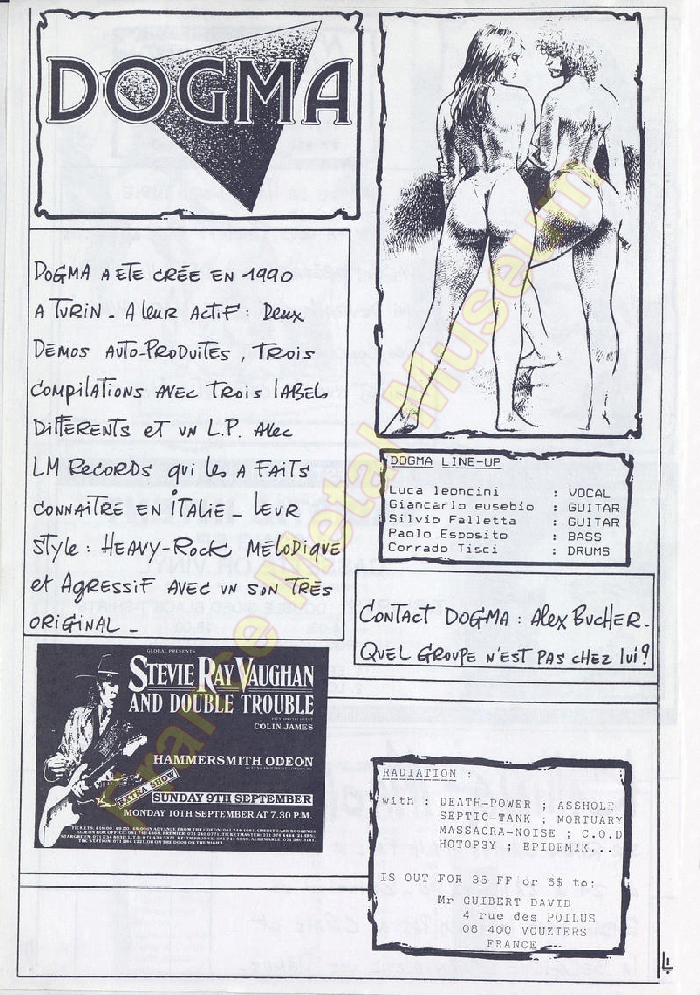 DOGMA
DOGMA A ETE CRÉE EN 1990
A TURIN - A leur ACTIF : Deux
DÉMOS AUTO-PRODUITES, TROIS
COMPILATIONS AVEC TROIS LABELS
DIFFERENTS et UN L.P. AVEC
LM RECORDS qui les A FAITS
CONNAÎTRE EN ITALIE - LEUR
STYLE : HEAVY-ROCK MÉLODIQUE
et AGRESSIF AVEC UN SON TRÈS
ORIGINAL -
DOGMA LINE-UP
Luca leoncini : VOCAL
Giancarlo eusebio : GUITAR
Silvio Falletta : GUITAR
Paolo Esposito : BASS
Corrado Tisci : DRUMS
CONTACT DOGMA : Alex BUCHER -
QUEL GROUPE N'EST PAS CHEZ lui?
GLOBAL PRESENTS
STEVIE RAY VAUGHAN
AND DOUBLE TROUBLE
COLIN JAMES
HAMMERSMITH ODEON
EXTRA SHOW
SUNDAY 9TH SEPTEMBER
MONDAY 10TH SEPTEMBER AT 7.30 P.M.
RADIATION :
with : DEATH-POWER ; ASSHOLE
SEPTIC-TANK ; MORTUARY
MASSACRA-NOISE ; C.O.D
HOTOPSY ; EPIDEMIK...
IS OUT FOR 35 FF or 8$ to:
Mr GUIBERT DAVID
4 rue des POILUS
08 400 VOUZIERS
FRANCE
France Metal Museum